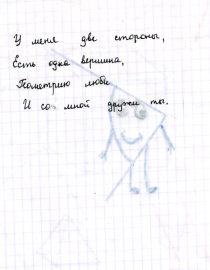 У меня две стороны,
Есть одна вершина,
Геометрию люби
И со мной дружи ты.